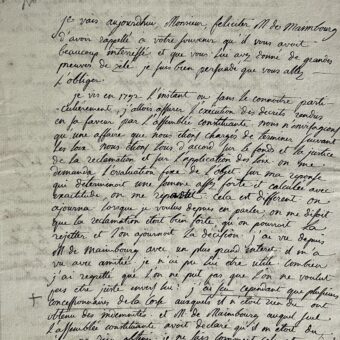 je vais aujourd'hui, Monsieur, feliciter M. de Maimbourg
d'avoir rappellé a votre souvenir qu'il vous avoit
beaucoup interessé et que vous lui avez donné de grandes
preuves de zele. je suis bien persuadé que vous allez
l'obliger.
je vis en 1792 l'instant ou sans le connoitre parti
culierement, j'allois assurer l'execution des decrets rendus
en sa faveur par l'assemblée constituante. nous n'envisagions
que une affaire que nous etions chargés de terminer suivant
les loix. nous etions tous d'accord sur le fonds et la justice
de la reclamation et sur l'application des loix. on me
demanda l'evaluation fixe de l'objet. sur ma reponse
qui determinoit une somme assés forte et calculée avec
exactitude, on me repartit: cela est different on
ajourna. lorsque je voulus depuis en parler on me disoit
que la reclamation etoit bien forte, qu'on pourroit la
rejetter et l'on ajournoit la decision. j'ai vu depuis
M. de Maimbourg avec un plus grand interet. il m'a
vu avec amitié. je n'ai pu lui etre utile. combien
j'ai regretté que l'on ne put pas que l'on ne voulut
pas etre juste envers lui! j'ai seu cependant que plusieurs
concessionnaires de la Corse auxquels il n'etoit rien du ont
obtenu des indemnités et M. de Maimbourg auquel seul
l'assemblée constituante avoit declaré qu'il en etoit du